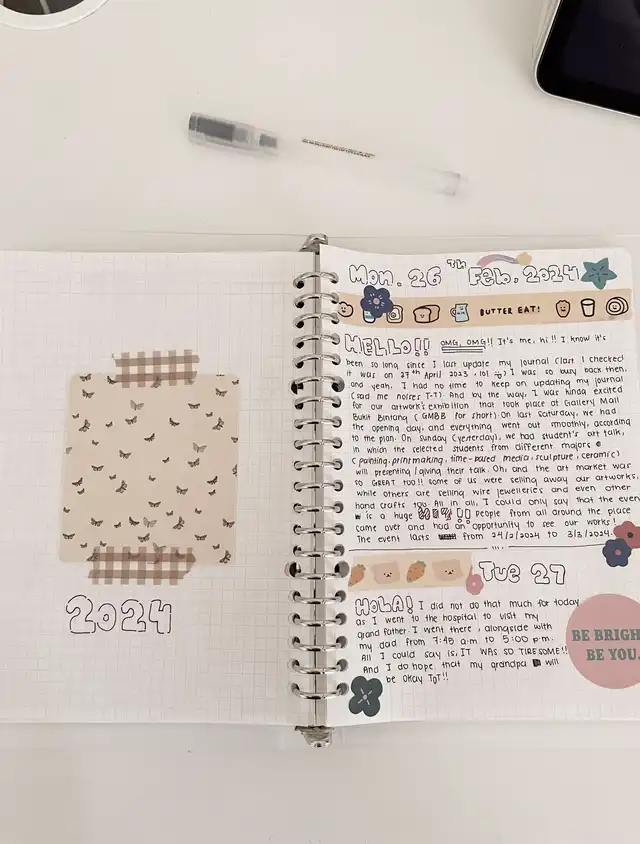 2024
Mon. 26th Feb. 2024
BUTTER EAT!
HELLO!! OMG, OMG!! It's me, hi!! I know it's
been so long since I last update my journal (last I checked
it was on 27th April 2023, lol) I was so busy back then,
and yeah, I had no time to keep on updating my journal
(sad me noises T-T). And by the way, I was kinda excited
for our artwork's exhibition that took place at Gallery Mall
Bukit Bintang (GMBB for short). On last Saturday, we had
the opening day, and everything went out smoothly, according
to the plan. On Sunday (yesterday), we had student's art talk,
in which the selected students from different majors
(painting, printmaking, time-based media, sculpture, ceramic)
will presenting/giving their talk. Oh, and the art market was
so GREAT too!! Some of us were selling away our artworks,
while others are selling wire jewelleries and even other
hand crafts too. All in all, I could only say that the even
is a huge !! People from all around the place
came over and had an opportunity to see our works!
The event lasts from 24/2/2024 to 3/3/2024.
Tue 27
HOLA! I did not do that much for today
as I went to the hospital to visit my
grand father. I went there, alongside with
my dad from 7:45 a.m to 5:00 p.m.
All I could say is, IT WAS SO TIRESOME!!
And I do hope that my grandpa will
be okay TOT!!
BE BRIGH
BE YOU.